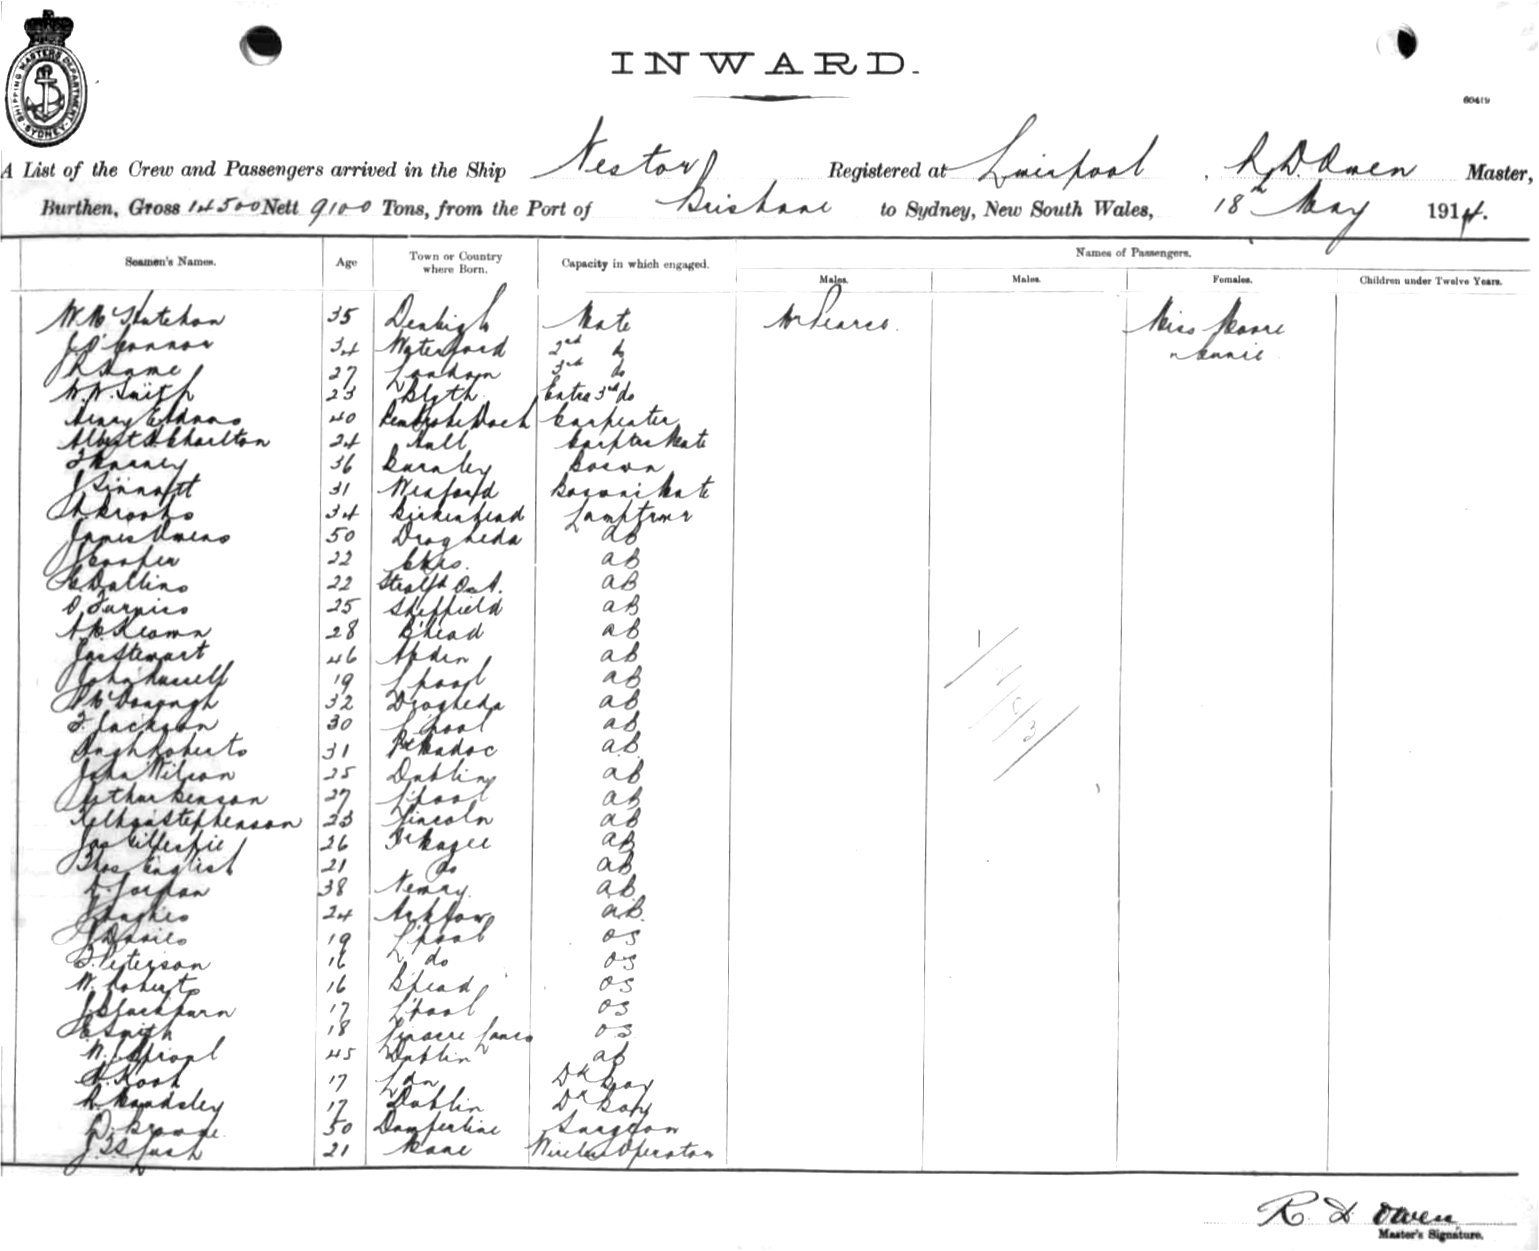 SHIPPING MASTERS DEPARTMENT SYDNEY
INWARD.
60419
A List of the Crew and Passengers arrived in the Ship Nestor Registered at Liverpool, R. D. Owen Master,
Burthen, Gross 14500 Nett 9100 Tons, from the Port of Brisbane to Sydney, New South Wales, 18th May 1914.
Seamen's Names. Age Town or Country where Born. Capacity in which engaged. Names of Passengers.
Males. Males. Females. Children under Twelve Years.
W McHutchon 35 Denbigh Mate Mr Pearce. Miss Moore
J O'Connor 34 Waterford 2nd do "
27 London 3rd do
W. W. Smith 23 Blyth Extra 3rd do
Henry E Adams 40 Pembroke Dock Carpenter
Albert Charlton 24 Hull Carptrs Mate
36 Burnley Bosun
J Sinnott 31 Wexford Bosuns Mate
A Brooks 34 Birkenhead Lamptrmr
James Owens 50 Drogheda AB
J Cooper 22 AB
22 AB
Furniss 25 Sheffield AB
McKeown 28 B'head AB
Jas Stewart 46 Abdn AB
John Russell 19 L'pool AB
P McDonagh 32 Drogheda AB
F. Jackson 30 L'pool AB
Hugh Roberts 31 Pt Madoc AB
John Wilson 25 Dublin AB
Arthur Benson 27 L'pool AB
Stephenson 23 Lincoln AB
Jas Gillespie 26 AB
Thos English 21 do AB
38 Newry AB
J Hughes 24 Arklow AB
J Davies 19 L'pool OS
F. Peterson 16 do OS
W. Roberts 16 B'head OS
J Blackburn 17 L'pool OS
E Smith 18 OS
W. J Sproul 45 Dublin AB
17 Ldn Dk Boy
R. Maudsley 17 Dublin Dk Boy
D. Browne 50 Surgeon
21 Wireless Operator
R. D. Owen
Master's Signature.